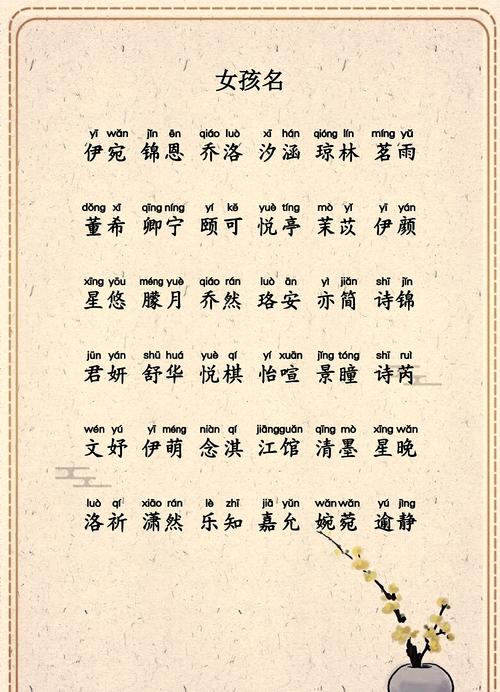 女孩名
yī wǎn jǐn ēn qiáo luò xī hán qióng lín míng yǔ
伊宛 锦恩 乔洛 汐涵 琼林 茗雨
dǒng xī qīng níng yí kě yuè tíng mò yǐ yī yán
董希 卿宁 颐可 悦亭 茉苡 伊颜
xīng yōu méng yuè qiáo rán luò ān yì jiǎn shī jǐn
星悠 朦月 乔然 珞安 亦简 诗锦
jūn yán shū huá yuè qí yí xuān jǐng tóng shī ruì
君妍 舒华 悦棋 怡喧 景瞳 诗芮
wén yú yī méng niàn qí jiāng guǎn qīng mò xīng wǎn
文妤 伊萌 念淇 江馆 清墨 星晚
luò qí xiāo rán lè zhī jiā yǔn wǎn wǎn yú jìng
洛祈 潇然 乐知 嘉允 婉菀 逾静